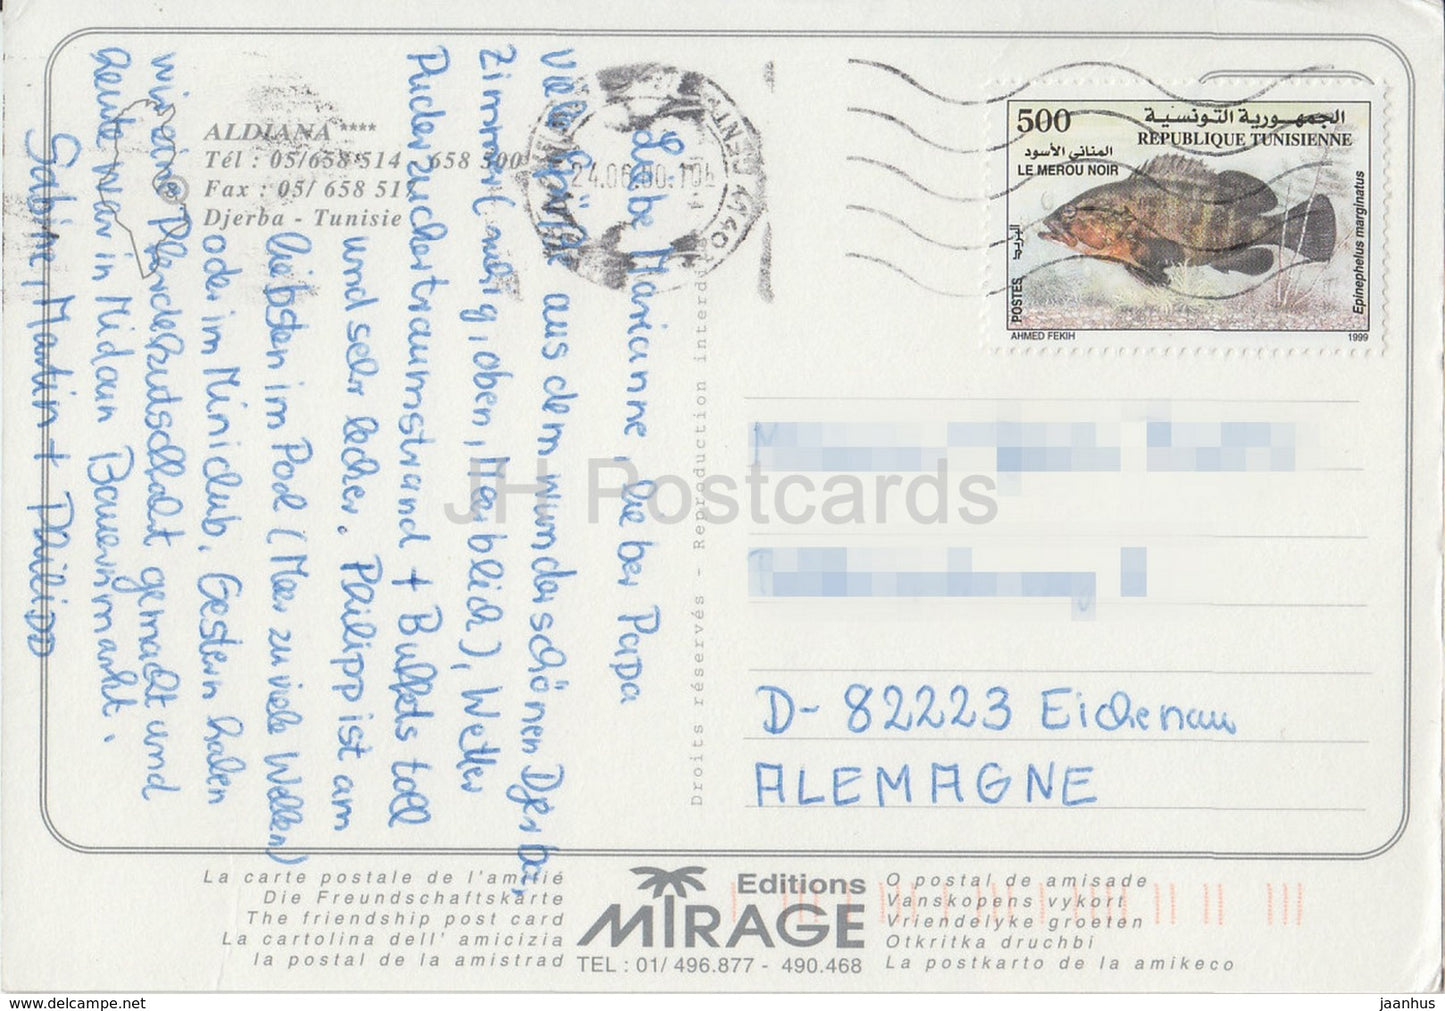 ALDIANA ****
Tél : 05/ 658 514 - 658 500
Fax : 05/ 658 517
Djerba - Tunisie
Liebe Marianne, lieber Papa
viele Grüße aus dem wunderschönen Djerba,
Zimmer (ruhig, oben, Meerblick), Wetter
Puderzuckertraumstrand + Buffets toll
und sehr lecker. Philipp ist am
liebsten im Pool (Meer zu viele Wellen)
oder im Miniclub. Gestern haben
wir eine Pferdekutschfahrt gemacht und
heute war in Midoun Bauernmarkt.
Sabine, Martin + Philipp
24.06.00
500
الجمهورية التونسية
REPUBLIQUE TUNISIENNE
المناني الأسود
LE MEROU NOIR
Epinephelus marginatus
البريد
POSTES
AHMED FEKIH
1999
Droits réservés - Reproduction interdite
D-82223 Eichenau
ALEMAGNE
JH Postcards
La carte postale de l'amitié
Die Freundschaftskarte
The friendship post card
La cartolina dell' amicizia
la postal de la amistrad
Editions
MIRAGE
TEL : 01/ 496.877 - 490.468
O postal de amisade
Vanskopens vykort
Vriendelyke groeten
Otkritka druchbi
La postkarto de la amikeco
www.delcampe.net
jaanhus